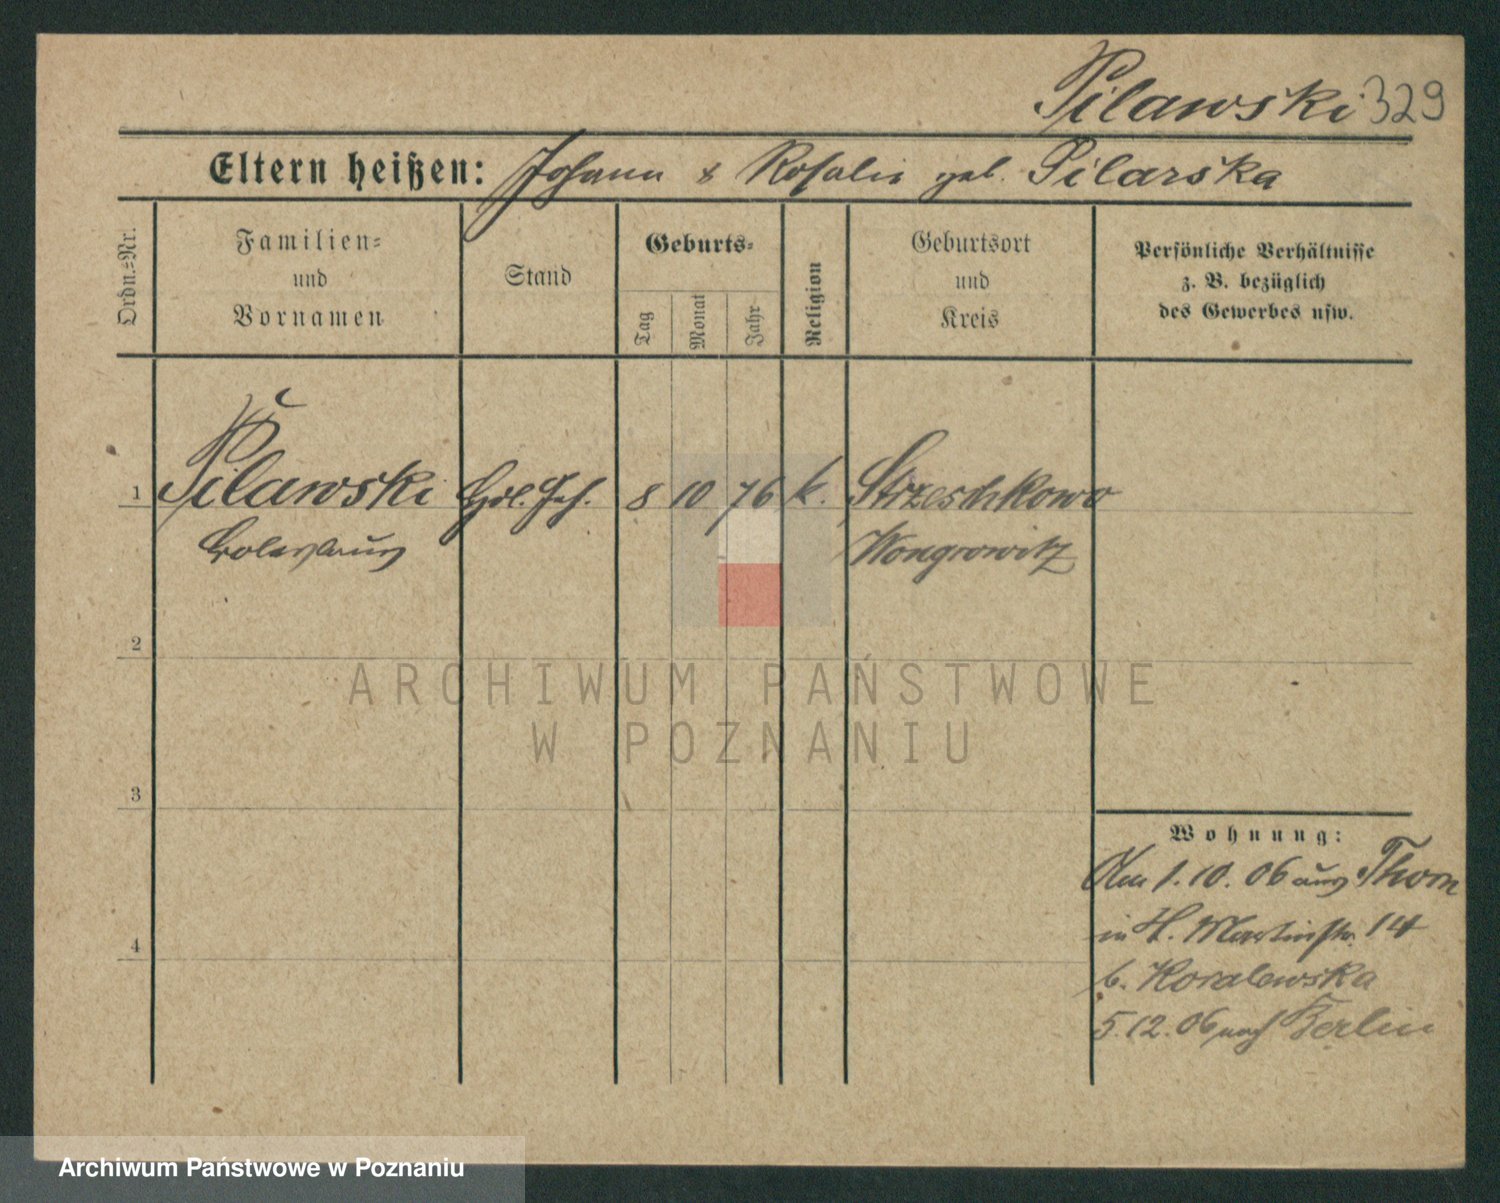 Pilawski 329
Eltern heißen: Johann & Rosalie geb. Pilarska
Ordn.-Nr.
Familien-
und
Vornamen
Stand
Geburts-
Tag
Monat
Jahr
Religion
Geburtsort
und
Kreis
Persönliche Verhältnisse
z. B. bezüglich
des Gewerbes usw.
1 Pilawski Hdl. Geh. 8 10 76 k. Streschkowo
Boleslaus Wongrowitz
2
3
4
Wohnung:
Am 1.10.06 aus Thorn
in St. Martinstr. 14
b. Koralewska
5.12.06 nach Berlin
ARCHIWUM PAŃSTWOWE
W POZNANIU
Archiwum Państwowe w Poznaniu